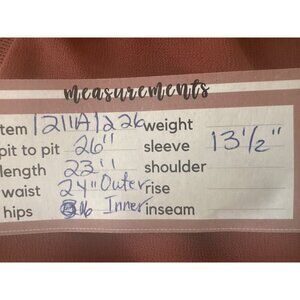 measurements
tem 1211A1226 weight
pit to pit 26" sleeve 13½"
length 23" shoulder
waist 24" Outer rise
hips Inner inseam